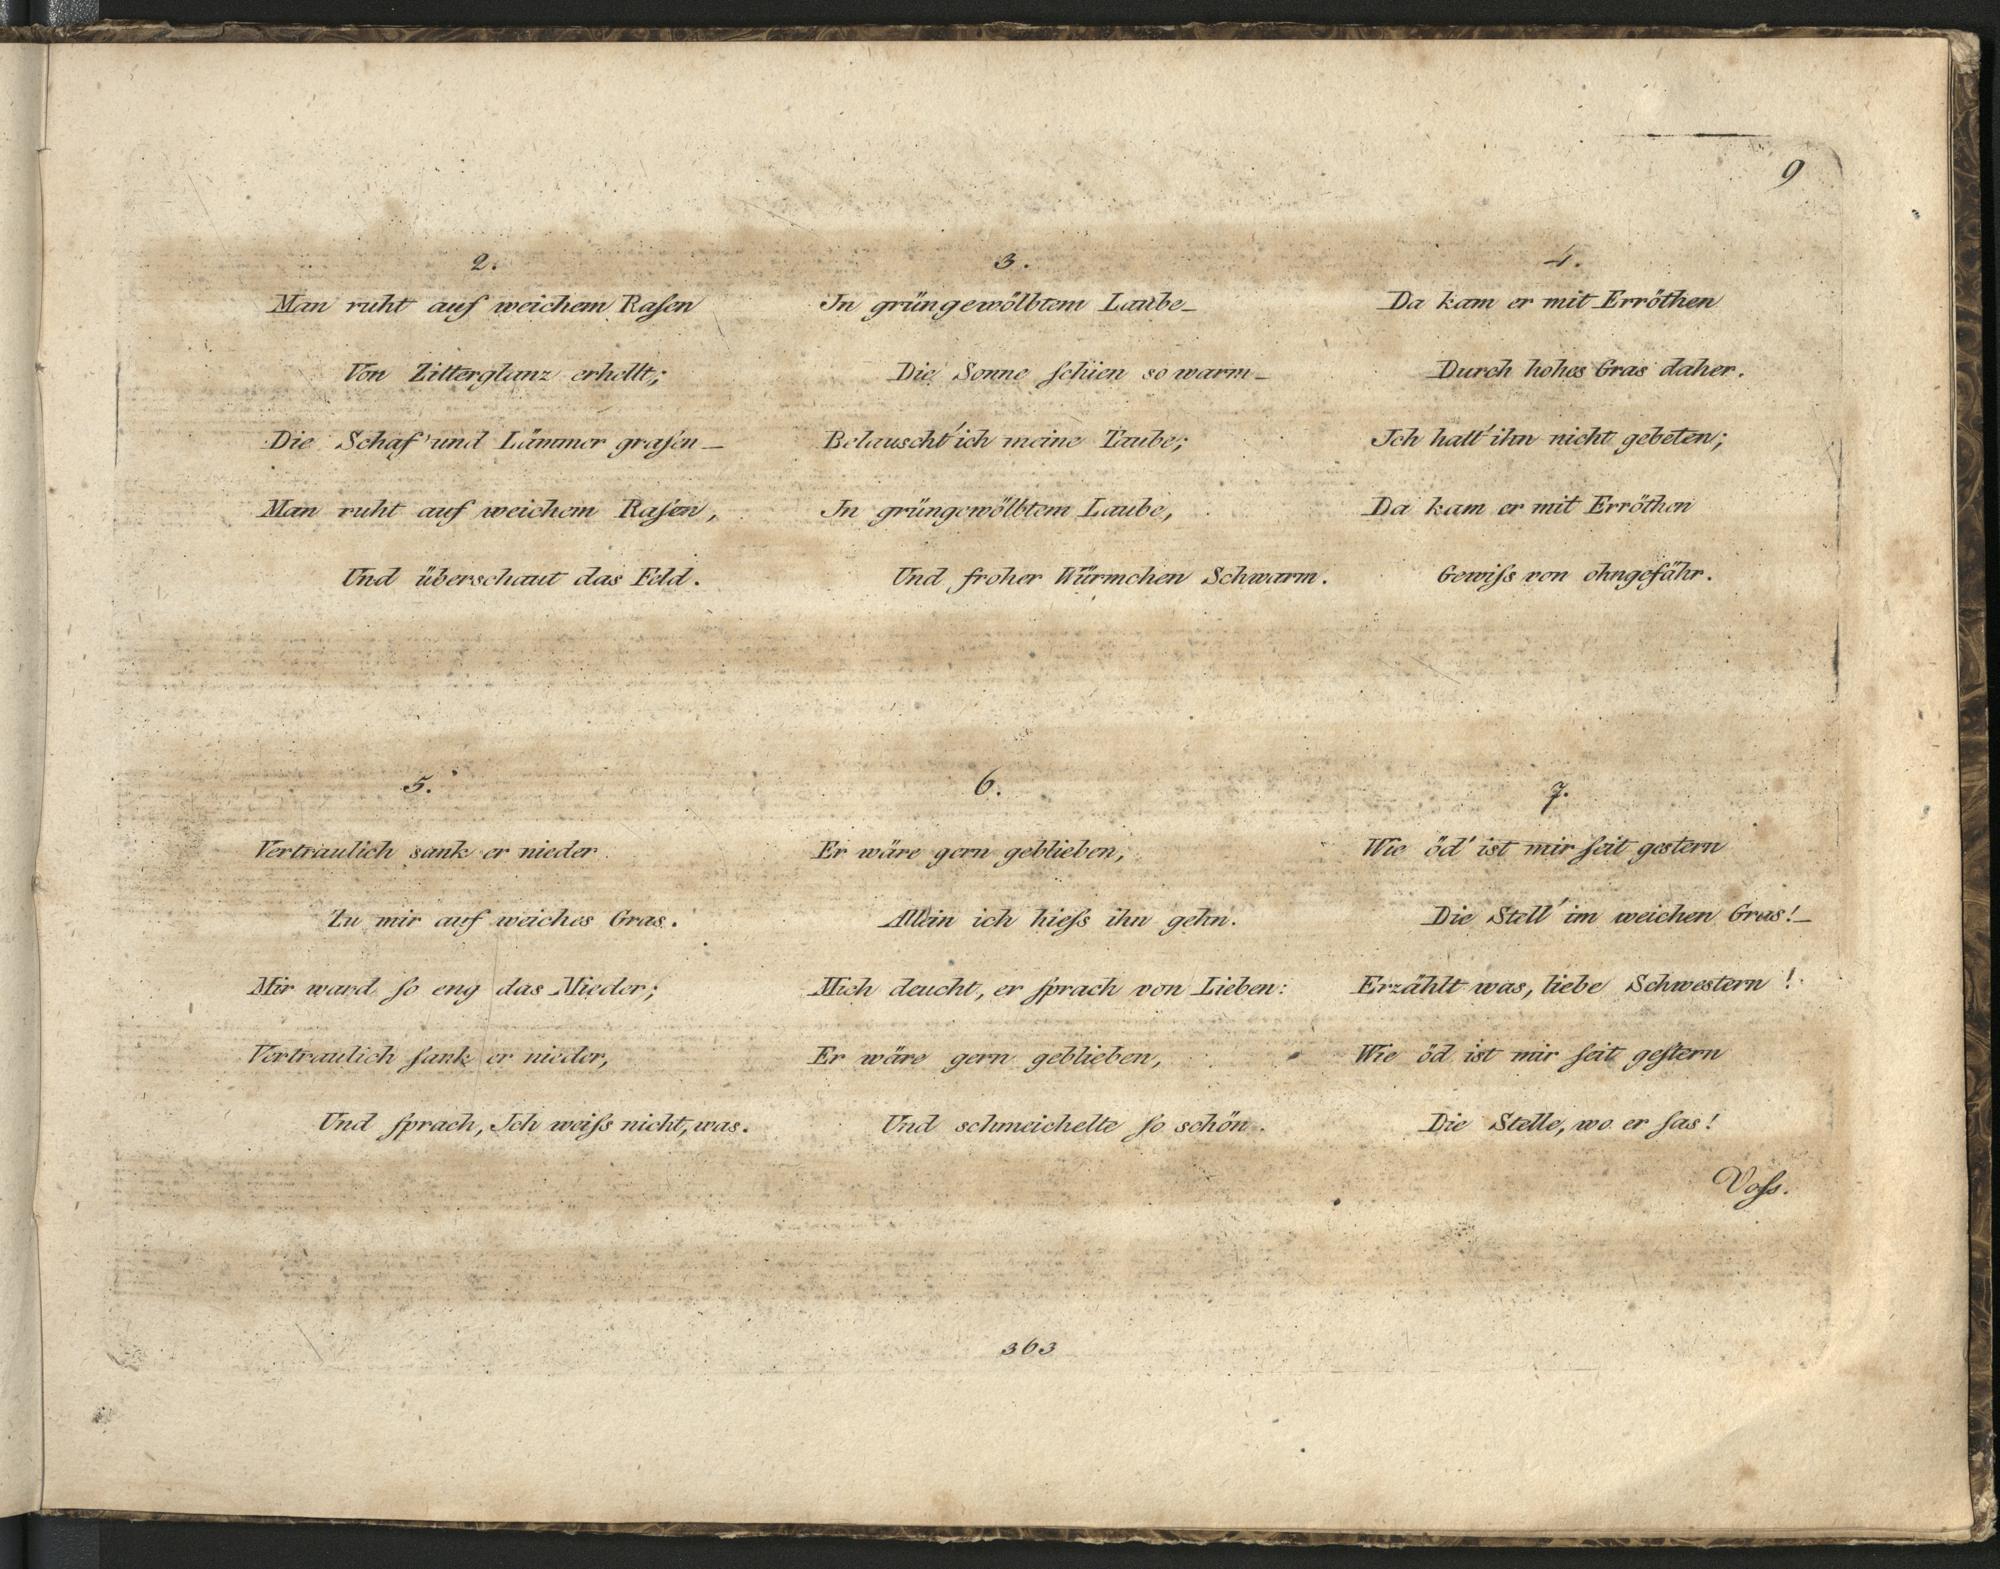 9
2.
Man ruht auf weichem Raſen
Von Zitterglanz erhellt;
Die Schaf' und Lämmer graſen _
Man ruht auf weichem Raſen,
Und überschaut das Feld.
3.
In grüngewölbtem Laube _
Die Sonne ſchien so warm _
Belauscht' ich meine Taube;
In grüngewölbtem Laube,
Und froher Würmchen Schwarm.
4.
Da kam er mit Erröthen
Durch hohes Gras daher.
Ich hatt' ihn nicht gebeten;
Da kam er mit Erröthen
Gewiſs von ohngefähr.
5.
Vertraulich sank er nieder
Zu mir auf weiches Gras.
Mir ward ſo eng das Mieder;
Vertraulich ſank er nieder,
Und ſprach, Ich weiſs nicht, was.
6.
Er wäre gern geblieben,
Allein ich hieſs ihn gehn.
Mich deucht, er ſprach von Lieben:
Er wäre gern geblieben,
Und schmeichelte ſo schön.
7.
Wie öd' ist mir ſeit gestern
Die Stell' im weichen Gras! _
Erzählt was, liebe Schwestern!
Wie öd ist mir ſeit geſtern
Die Stelle, wo er ſas!
Voſs.
363